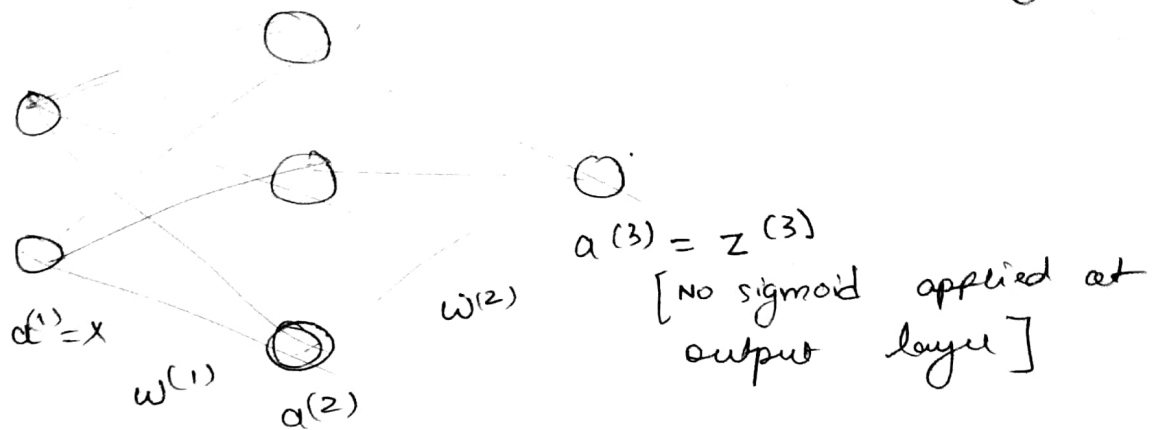 a(3) = z(3)
[No sigmoid applied at
output layer]
w(2)
a(1)=x
w(1)
a(2)